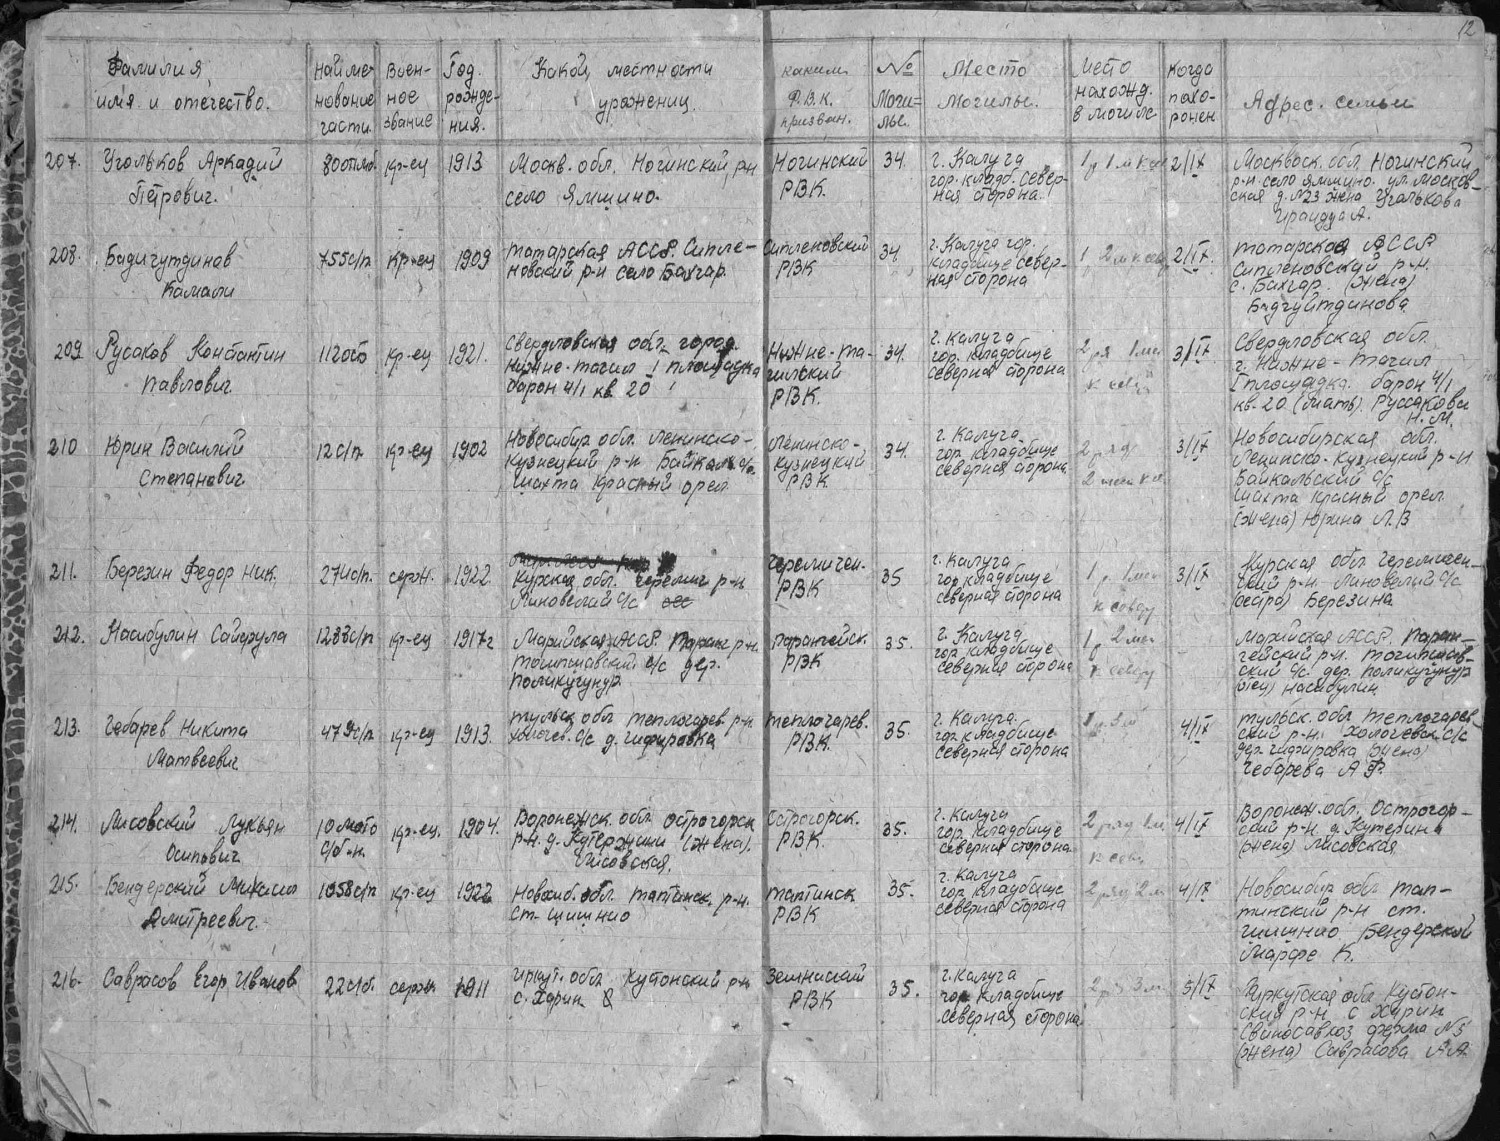 12
Фамилия, имя и отчество.
Наименование части.
Военное звание
Год рождения.
Какой местности уроженец.
каким Р.В.К. призван.
№ Могилы.
Место Могилы.
Место нахожд. в могиле
когда похоронен
Адрес семьи
207. Угольков Аркадий
Петрович.
кр-ец 1913
Москв. обл. Ногинский р-н
село Ямшино.
Ногинский
РВК.
34.
г. Калуга
гор. кладб. север-
ная сторона.
2/IV
Московск. обл Ногинский
р-н село Ямшино. ул. Москов-
ская д. №23 жена Уголькова
208. Бадигутдинов
Камали
755с/п кр-ец 1909
Татарская АССР. Сипле-
новский р-н село Бахгар.
Сипленовский
РВК
34
г. Калуга гор.
кладбище север-
ная сторона
2/IV.
Татарская АССР
Сипленовский р-н.
с. Бахгар. (жена)
Бадгуйтдинова
209 Русаков Константин
Павлович.
кр-ец 1921.
Свердловская обл. город.
Нижне-Тагил I площадка
барон 4/1 кв. 20
Нижне-Та-
гильский
РВК.
34.
г. Калуга
гор. кладбище
северная сторона
2 ря 1 м
к север
3/IV
Свердловская обл.
г. Нижне-Тагил
I площадка. барон 4/1
кв. 20 (мать) Русакова
Н.М.
210 Юрин Василий
Степанович
12с/п кр-ец 1902
Новосибир обл. Ленинско-
Кузнецкий р-н с/с
шахта Красный орел
Ленинско-
Кузнецкий
РВК
34.
г. Калуга
гор кладбище
северная сторона
2 ряд
3/IV
Новосибирская обл.
Ленинско-Кузнецкий р-н
Байкальский с/с
шахта Красный орел
(жена) Юрина Л.В
211. Березин Федор Ник.
274с/п. серж. 1922
Курская обл. Черемич р-н
Линовский с/с
Черемичен.
РВК
35
г. Калуга
гор кладбище
северная сторона
1 р 1 м
к северу
3/IV
Курская обл Черемичен-
ский р-н Линовский с/с
(сестра) Березина
212. Насибулин Сайфула
1283с/п кр-ец 1917г
Марийская АССР. Паран р-н.
с/с дер.
Поликугунур
Парангейск.
РВК
35.
г. Калуга
гор. кладбище
северная сторона
1 р 2 м
к северу
Марийская АССР. Паран-
гейский р-н.
ский с/с. дер. Поликугунур
отец) Насибулин
213. Чебарев Никита
Матвеевич
479с/п кр-ец 1913.
Тульск. обл Теплогарев. р-н
Хологев. с/с д. Гифировка
Теплогарев.
РВК.
35.
г. Калуга.
гор. кладбище
северная сторона
4/IV
Тульск. обл Теплогарев-
ский р-н. Хологевск. с/с
дер. Гифировка (жена)
Чебарева А Ф.
214. Лисовский Лукьян
Осипович
10 мото
с/б-н.
кр-ец. 1904.
Воронежск. обл Острогорск
р-н. д. (жена).
Лисовская.
Острогорск.
РВК.
35.
г. Калуга
гор. кладбище
северная сторона
2 ряд 1 м
к север
4/IV
Воронеж. обл. Острогор-
ский р-н. д. Кутерин
(жена) Лисовская
215. Бендерский Михаил
Дмитреевич.
1058с/п кр-ец 1922
Новосиб. обл Таптинск. р-н.
ст. Щишнио
Таптинск
РВК
35.
г. Калуга
гор кладбище
северная сторона
2 ряд 2 м
4/IV
Новосибир обл Тап-
тинский р-н ст.
Бендерской
Марфе К.
216. Саврасов Егор Иванов
22с/б. сержан 1911
Иркут. обл Кутонский р-н
с. Харин 8
РВК
35.
г. Калуга
гор кладбище
северная сторона.
2 ря 3 м.
5/IV
Иркутская обл Кутон-
ский р-н с Харин
ферма №5
(жена) Саврасова А А